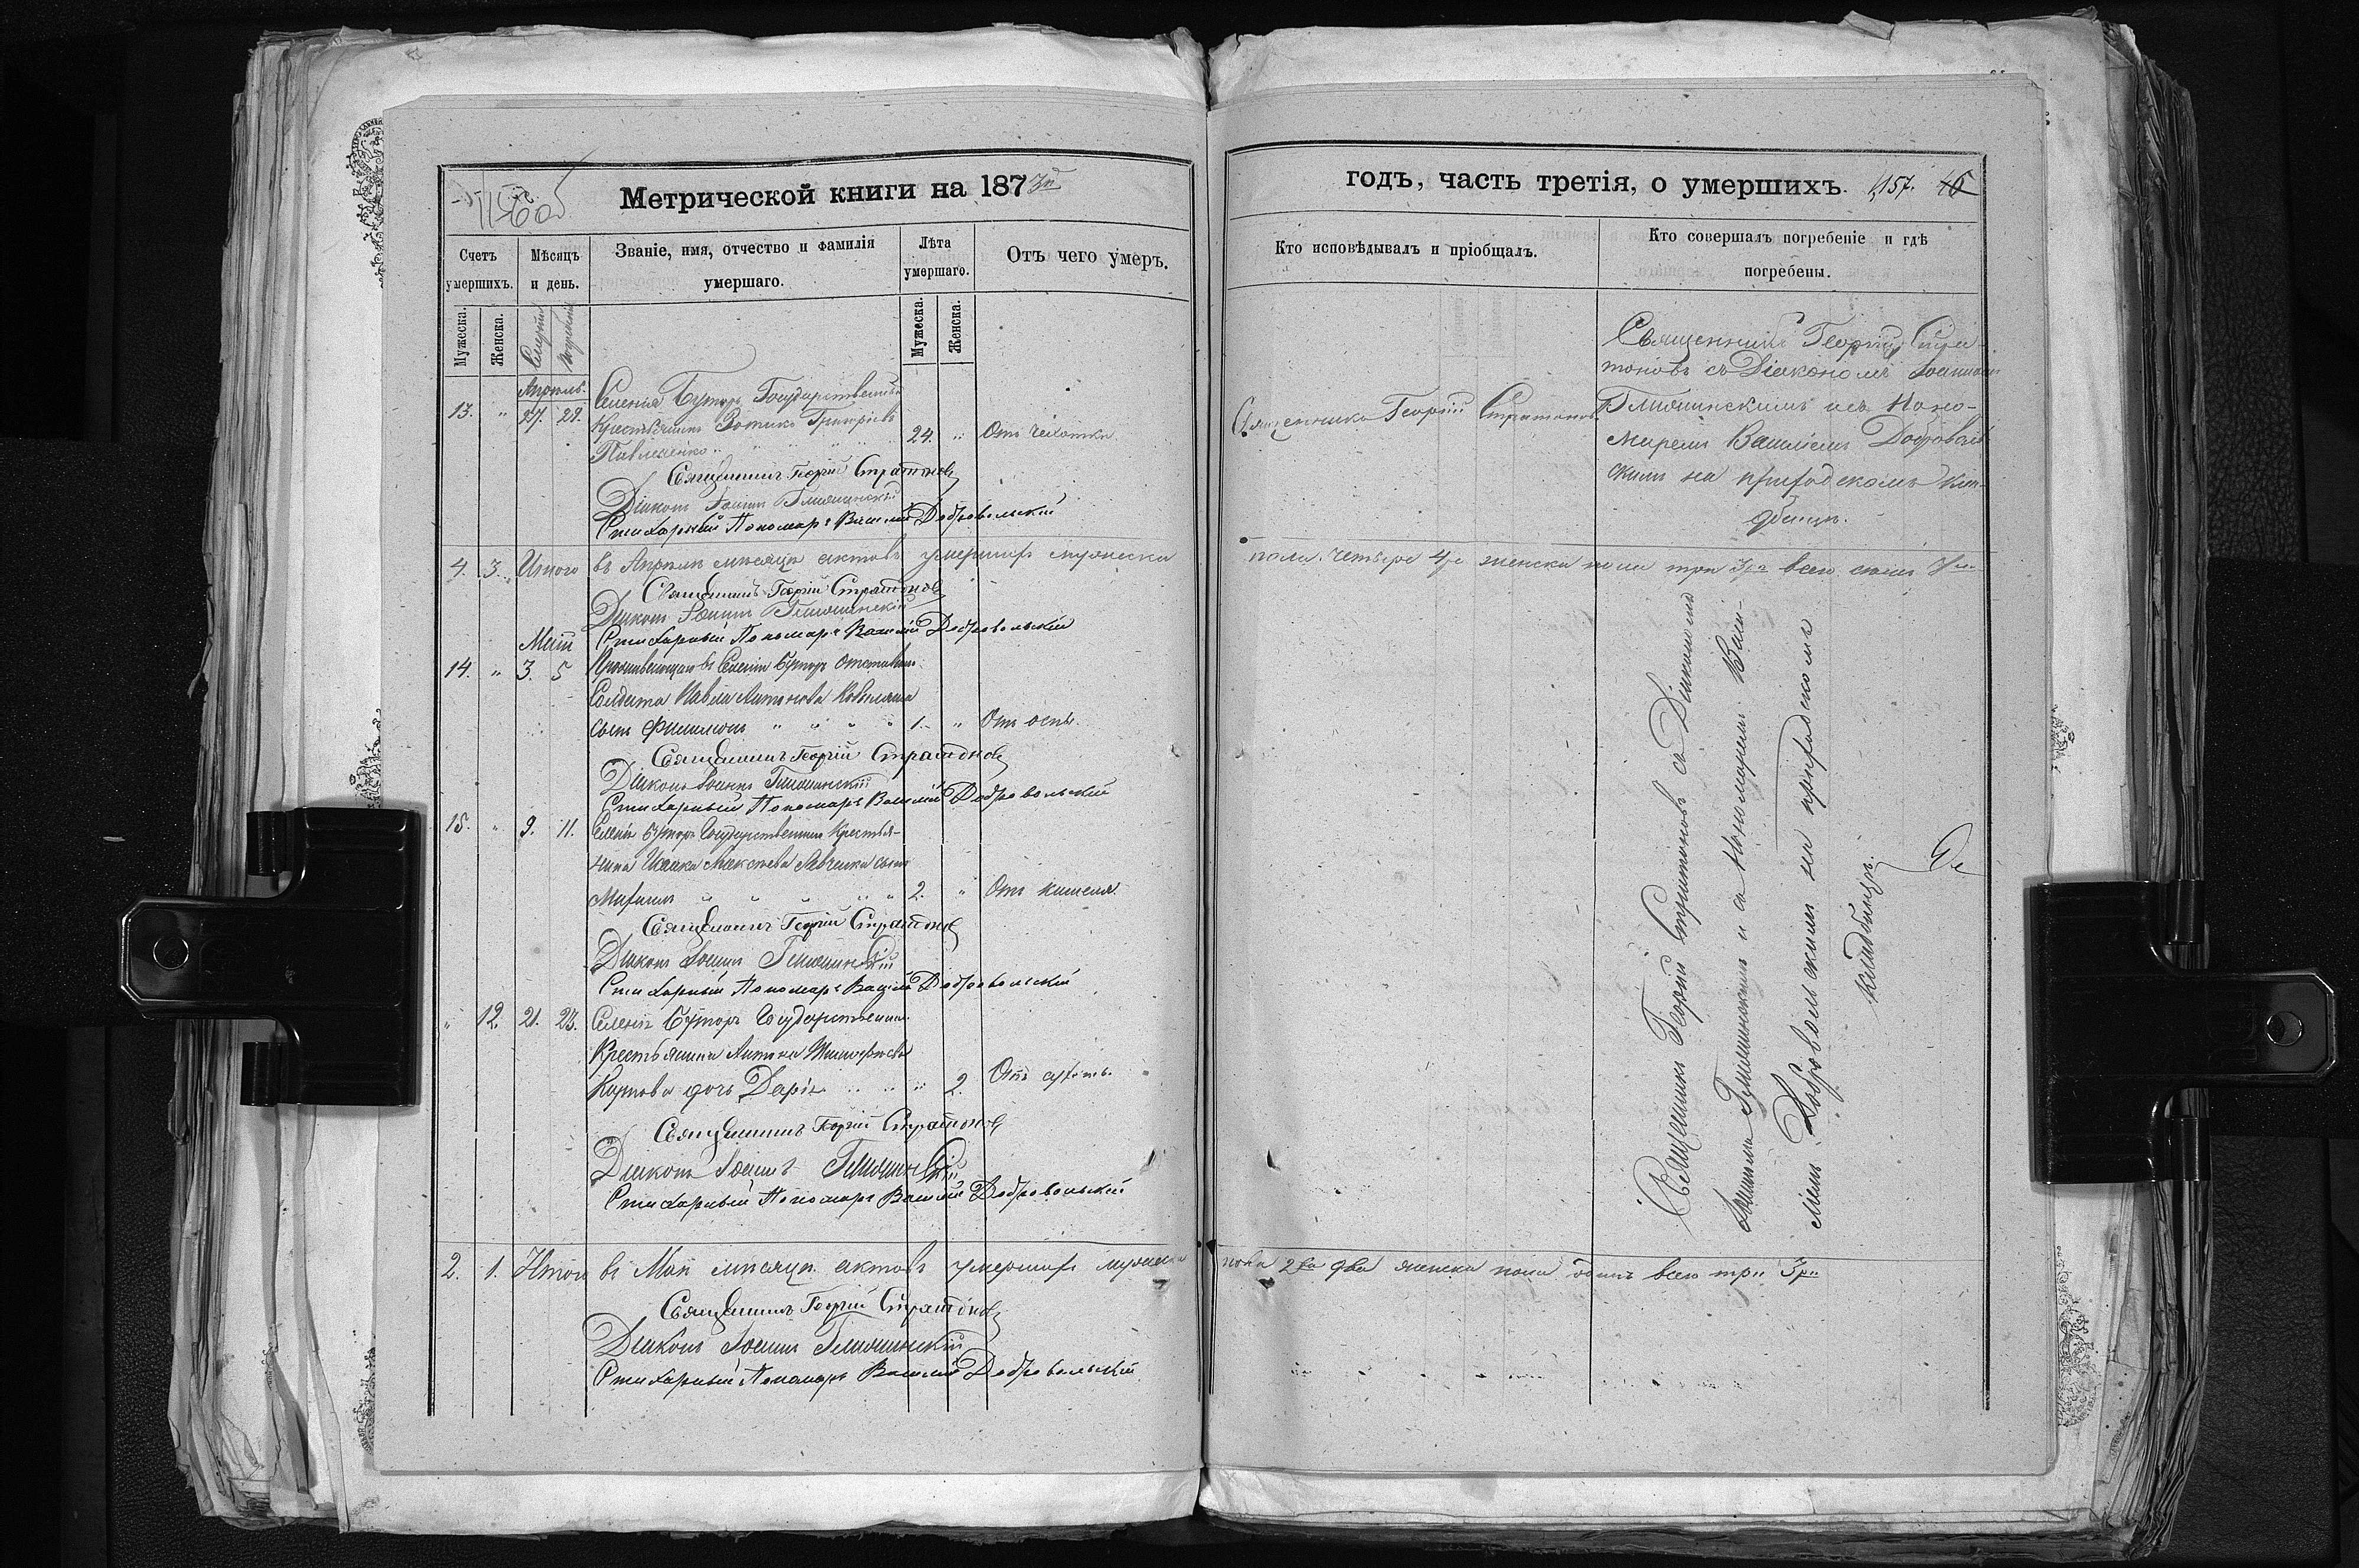 Метрической книги на 1873й
годъ, часть третія, о умершихъ. 157. 46
Счетъ умершихъ.
Мѣсяцъ и день.
Званіе, имя, отчество и фамилія умершаго.
Лѣта умершаго.
Отъ чего умеръ.
Кто исповѣдывалъ и пріобщалъ.
Кто совершалъ погребеніе и гдѣ погребены.
Мужеска.
Женска.
Мужеска.
Женска.
Апрѣль.
13. " 27. 29. Селенія Буторъ Государственный
Крестьянинъ
Павленко 24. " Отъ чахотки
Священникъ Георгій Стратоновъ
Діаконъ Іоаннъ
Стихарный Пономарь Василій Добровольскій
Священникъ Георгій Стратоновъ
Священникъ Георгій Страто-
новъ съ Діакономъ Іоанномъ
съ Поно-
маремъ Василіемъ Доброволь-
скимъ на приходскомъ кла-
дбищѣ.
4. 3. Итого въ Апрѣлѣ мѣсяцѣ актовъ умершихъ мужеска
пола четыре 4ре женска пола три 3ри всего семь 7мь
Священникъ Георгій Стратоновъ
Діаконъ Іоаннъ
Стихарный Пономарь Василій Добровольскій
Май
14. " 3. 5 Проживающаго въ Селеніи Буторъ отставнаго
Солдата Павла Антонова
сынъ Филимонъ " " " " 1. " Отъ оспы.
Священникъ Георгій Стратоновъ
Діаконъ Іоаннъ
Стихарный Пономарь Василій Добровольскій
15. " 9. 11. Селенія Буторъ Государственнаго Крестья-
нина Исаака сынъ
2. " Отъ кашеля
Священникъ Георгій Стратоновъ
Діаконъ Іоаннъ
Стихарный Пономарь Василій Добровольскій
" 12. 21. 23. Селенія Буторъ Государственнаго
Крестьянина Антона Тимофѣева
дочь Дарія " " " 2.
Священникъ Георгій Стратоновъ
Діаконъ Іоаннъ
Стихарный Пономарь Василій Добровольскій
Священникъ Георгій Стратоновъ съ Діакономъ
Іоанномъ и съ Пономаремъ Васи-
ліемъ Добровольскимъ на приходскомъ
кладбищѣ.
2. 1. Итого въ Маѣ мѣсяцѣ актовъ умершихъ мужеска
пола 2ва два женска пола одинъ всего три 3ри
Священникъ Георгій Стратоновъ
Діаконъ Іоаннъ
Стихарный Пономарь Василій Добровольскій